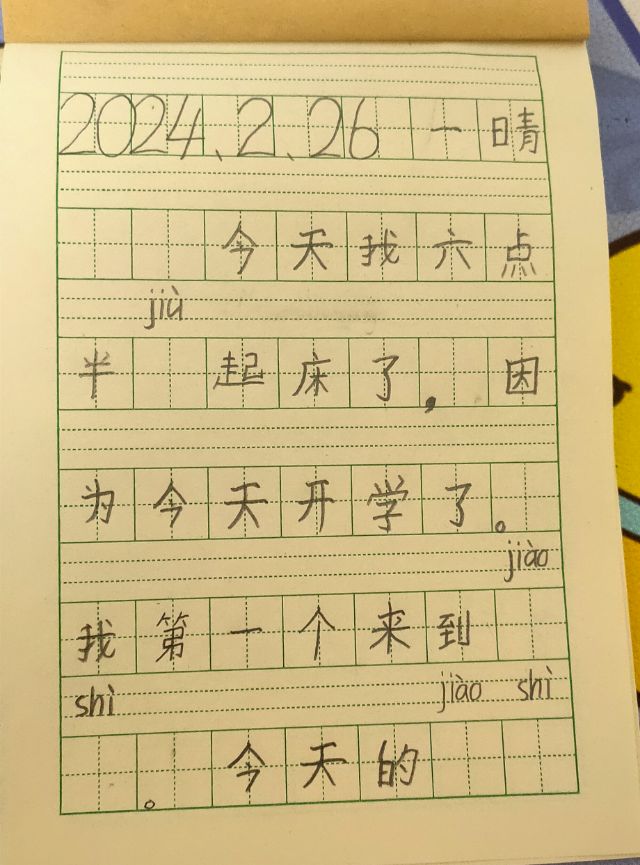 2024、2、26 一 晴
今天我六点
jiù
半 起床了，因
为今天开学了。
jiào
我第一个来到
shì jiào shì
。今天的